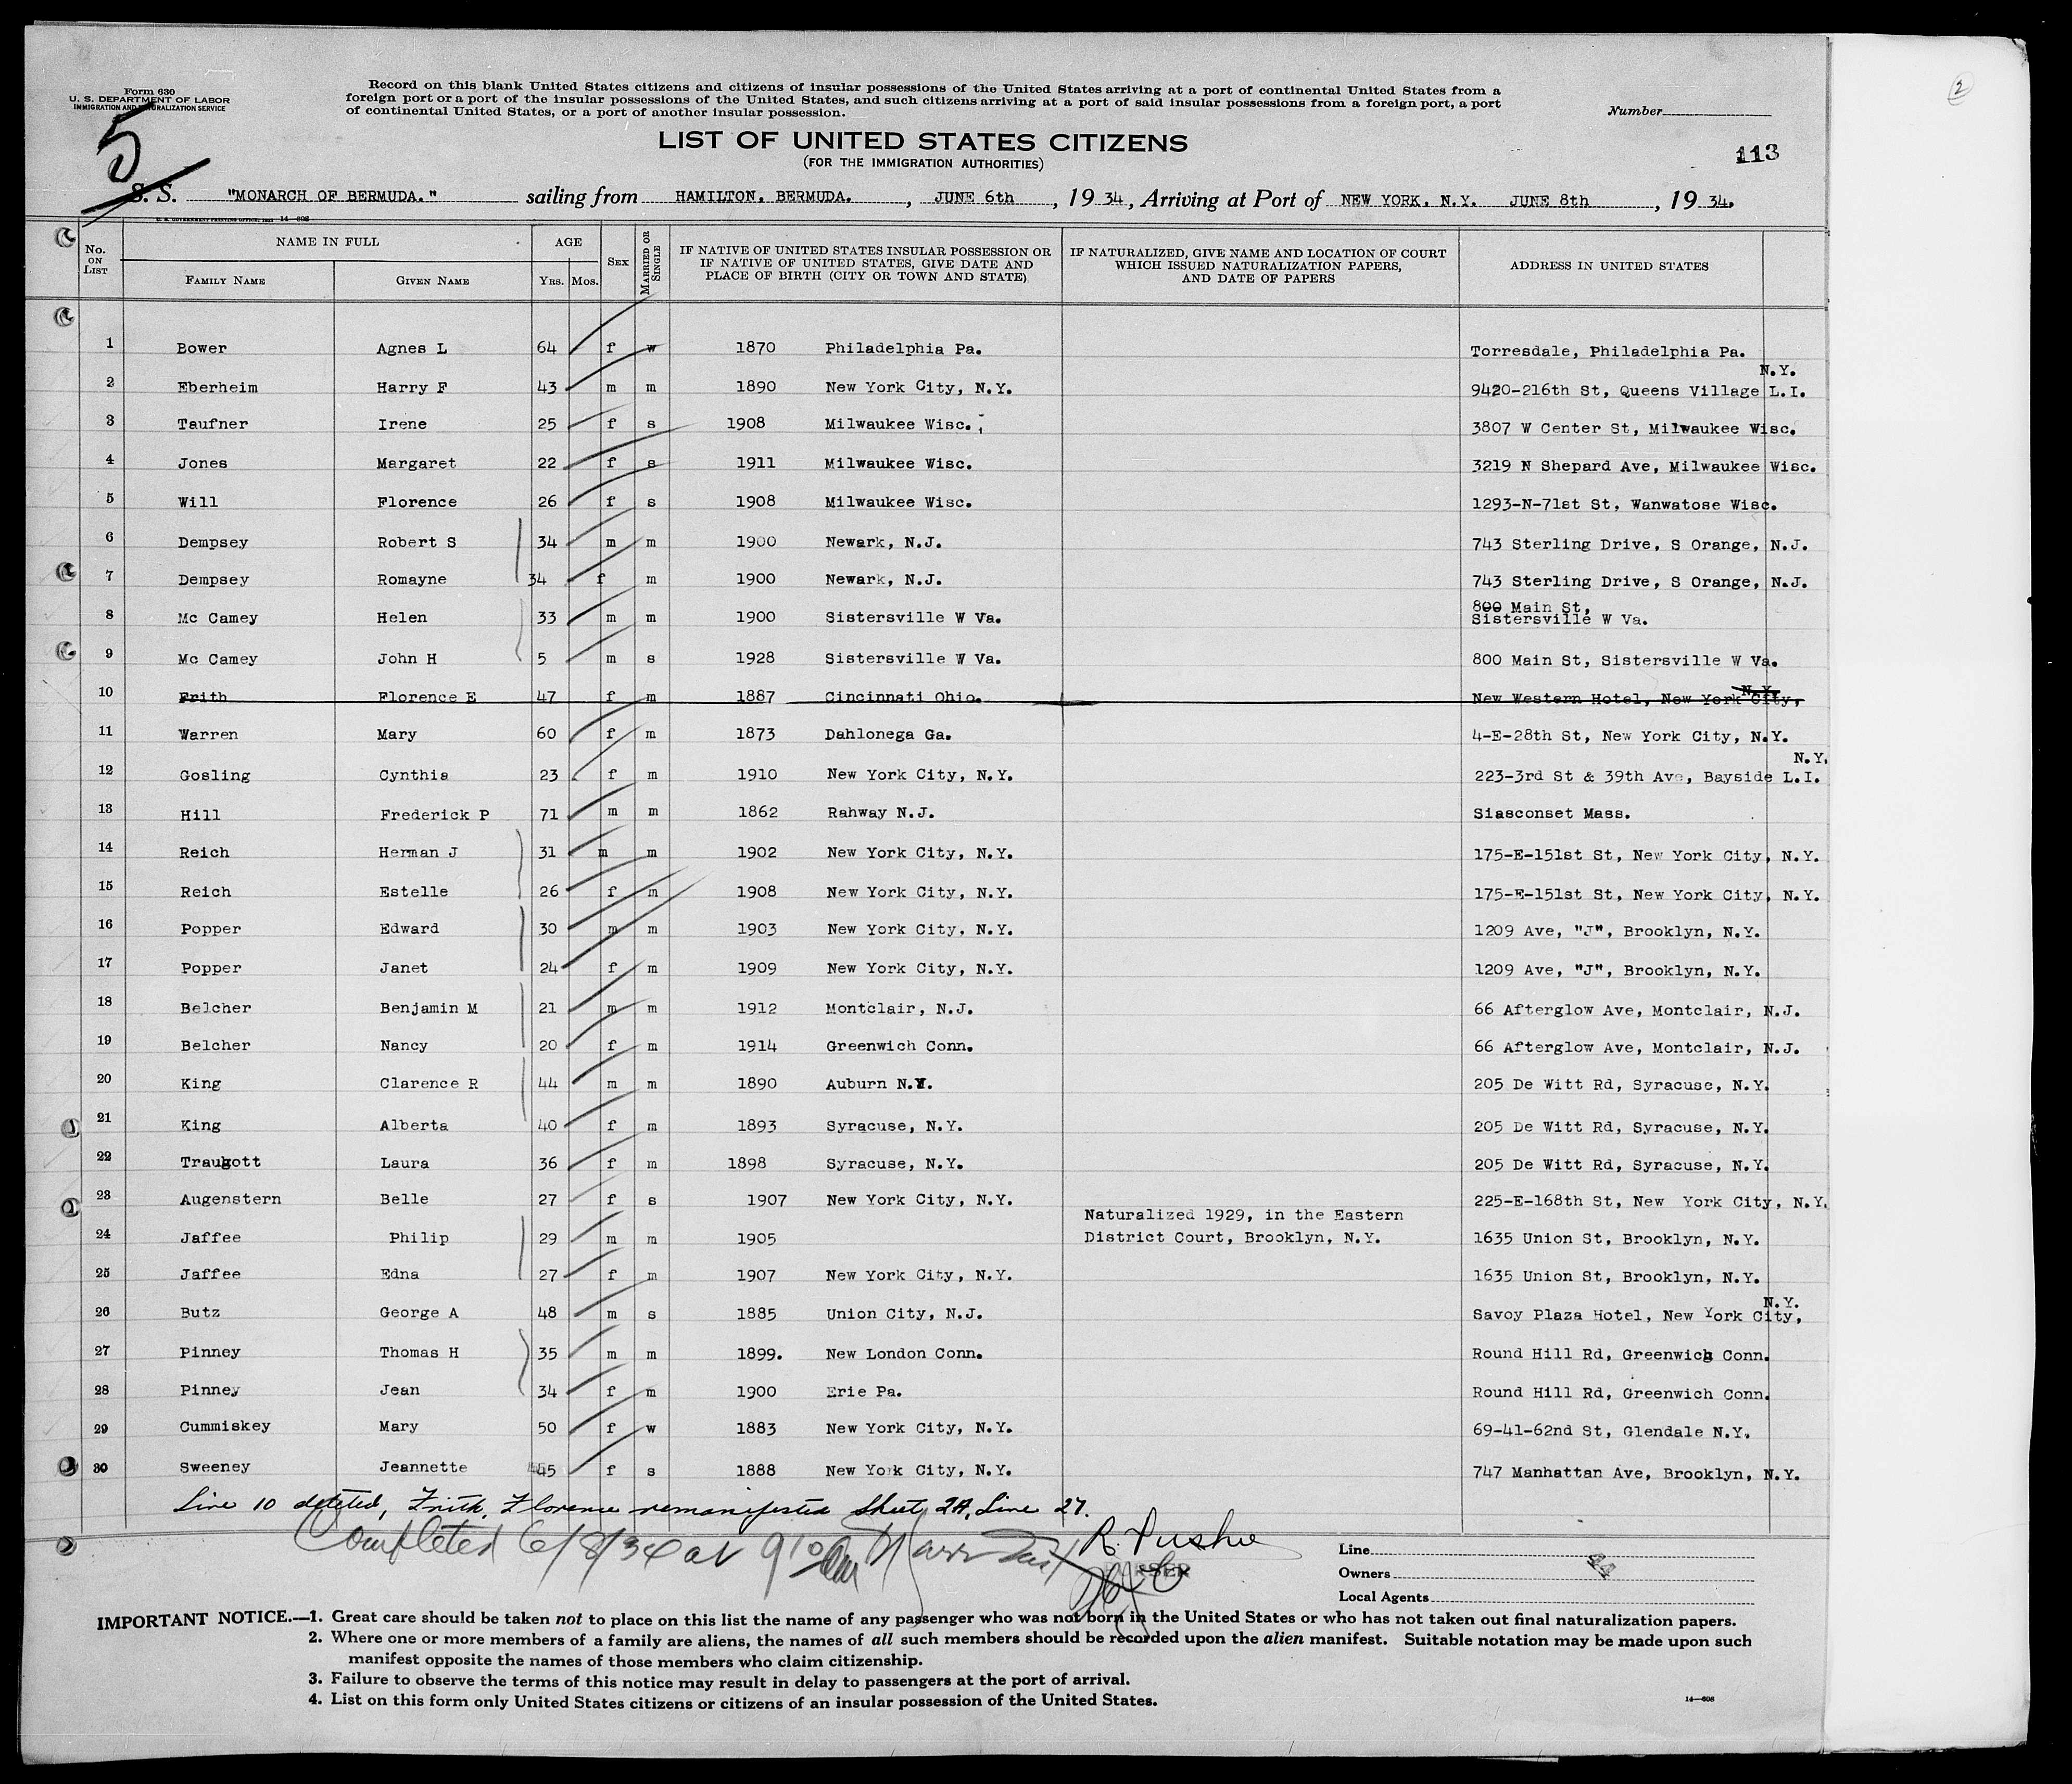 2
Form 630
U. S. DEPARTMENT OF LABOR
IMMIGRATION AND NATURALIZATION SERVICE
5
Record on this blank United States citizens and citizens of insular possessions of the United States arriving at a port of continental United States from a
foreign port or a port of the insular possessions of the United States, and such citizens arriving at a port of said insular possessions from a foreign port, a port
of continental United States, or a port of another insular possession.
Number
LIST OF UNITED STATES CITIZENS
(FOR THE IMMIGRATION AUTHORITIES)
113
S. S. "MONARCH OF BERMUDA." sailing from HAMILTON. BERMUDA. , JUNE 6th , 19 34, Arriving at Port of NEW YORK. N.Y. JUNE 8th , 19 34.
U. S. GOVERNMENT PRINTING OFFICE 14—608
No. ON LIST NAME IN FULL AGE SEX MARRIED OR SINGLE IF NATIVE OF UNITED STATES INSULAR POSSESSION OR IF NATIVE OF UNITED STATES, GIVE DATE AND PLACE OF BIRTH (CITY OR TOWN AND STATE) IF NATURALIZED, GIVE NAME AND LOCATION OF COURT WHICH ISSUED NATURALIZATION PAPERS, AND DATE OF PAPERS ADDRESS IN UNITED STATES
FAMILY NAME GIVEN NAME YRS. MOS.
1 Bower Agnes L 64 f w 1870 Philadelphia Pa. Torresdale, Philadelphia Pa.
N.Y.
2 Eberheim Harry F 43 m m 1890 New York City, N.Y. 9420-216th St, Queens Village L.I.
3 Taufner Irene 25 f s 1908 Milwaukee Wisc. 3807 W Center St, Milwaukee Wisc.
4 Jones Margaret 22 f s 1911 Milwaukee Wisc. 3219 N Shepard Ave, Milwaukee Wisc.
5 Will Florence 26 f s 1908 Milwaukee Wisc. 1293-N-71st St, Wanwatose Wisc.
6 Dempsey Robert S 34 m m 1900 Newark, N.J. 743 Sterling Drive, S Orange, N.J.
7 Dempsey Romayne 34 f m 1900 Newark, N.J. 743 Sterling Drive, S Orange, N.J.
800 Main St,
8 Mc Camey Helen 33 m m 1900 Sistersville W Va. Sistersville W Va.
9 Mc Camey John H 5 m s 1928 Sistersville W Va. 800 Main St, Sistersville W Va.
N.Y.
10 Frith Florence E 47 f m 1887 Cincinnati Ohio. New Western Hotel, New York City,
11 Warren Mary 60 f m 1873 Dahlonega Ga. 4-E-28th St, New York City, N.Y.
N.Y.
12 Gosling Cynthia 23 f m 1910 New York City, N.Y. 223-3rd St & 39th Ave, Bayside L.I.
13 Hill Frederick P 71 m m 1862 Rahway N.J. Siasconset Mass.
14 Reich Herman J 31 m m 1902 New York City, N.Y. 175-E-151st St, New York City, N.Y.
15 Reich Estelle 26 f m 1908 New York City, N.Y. 175-E-151st St, New York City, N.Y.
16 Popper Edward 30 m m 1903 New York City, N.Y. 1209 Ave, "J", Brooklyn, N.Y.
17 Popper Janet 24 f m 1909 New York City, N.Y. 1209 Ave, "J", Brooklyn, N.Y.
18 Belcher Benjamin M 21 m m 1912 Montclair, N.J. 66 Afterglow Ave, Montclair, N.J.
19 Belcher Nancy 20 f m 1914 Greenwich Conn. 66 Afterglow Ave, Montclair, N.J.
20 King Clarence R 44 m m 1890 Auburn N.Y. 205 De Witt Rd, Syracuse, N.Y.
21 King Alberta 40 f m 1893 Syracuse, N.Y. 205 De Witt Rd, Syracuse, N.Y.
22 Traugott Laura 36 f m 1898 Syracuse, N.Y. 205 De Witt Rd, Syracuse, N.Y.
23 Augenstern Belle 27 f s 1907 New York City, N.Y. 225-E-168th St, New York City, N.Y.
Naturalized 1929, in the Eastern
24 Jaffee Philip 29 m m 1905 District Court, Brooklyn, N.Y. 1635 Union St, Brooklyn, N.Y.
25 Jaffee Edna 27 f m 1907 New York City, N.Y. 1635 Union St, Brooklyn, N.Y.
N.Y.
26 Butz George A 48 m s 1885 Union City, N.J. Savoy Plaza Hotel, New York City,
27 Pinney Thomas H 35 m m 1899. New London Conn. Round Hill Rd, Greenwich Conn.
28 Pinney Jean 34 f m 1900 Erie Pa. Round Hill Rd, Greenwich Conn.
29 Cummiskey Mary 50 f w 1883 New York City, N.Y. 69-41-62nd St, Glendale N.Y.
30 Sweeney Jeannette 45 f s 1888 New York City, N.Y. 747 Manhattan Ave, Brooklyn, N.Y.
Line 10 deleted, Frith, Florence remanifested Sheet 2A, Line 27.
Completed 6/8/34 at 9 10 am
PURSER
Line
Owners
Local Agents
IMPORTANT NOTICE.—1. Great care should be taken not to place on this list the name of any passenger who was not born in the United States or who has not taken out final naturalization papers.
2. Where one or more members of a family are aliens, the names of all such members should be recorded upon the alien manifest. Suitable notation may be made upon such
manifest opposite the names of those members who claim citizenship.
3. Failure to observe the terms of this notice may result in delay to passengers at the port of arrival.
4. List on this form only United States citizens or citizens of an insular possession of the United States.
14—608